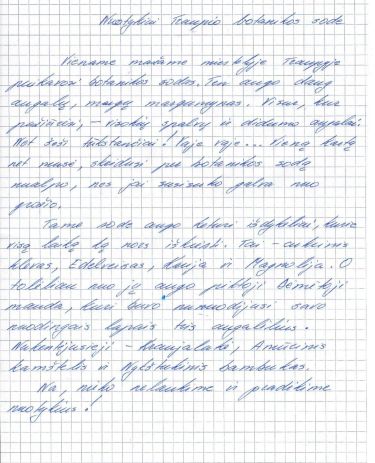 Nuotykiai Traupio botanikos sode
Viename mažame miestelyje Traupyje
puikavosi botanikos sodas. Ten augo daug
augalų, margų margumynas. Visur, kur
pažiūrėsi, – visokių spalvų ir didumo augalai.
Net šeši tūkstančiai! Vaje vaje... Vieną kartą
net musė, skridusi pro botanikos sodą
nualpo, nes jai susisuko galva nuo
grožio.
Tame sode augo keturi išdykėliai, kurie
visą laiką ką nors iškrėsti. Tai – cukrinis
klevas, Edelveisas, Tuja ir Magnolija. O
toliau nuo jų augo piktoji Dėmėtoji
mauda, kuri buvo nunuodijusi savo
nuodingais lapais tris augalėlius.
Nukentėjusieji – Kraujalakė, Amūrinis
kamštelis ir Nykštukinis bambukas.
Na, nieko nelaukime ir pradėkime
nuotykius!